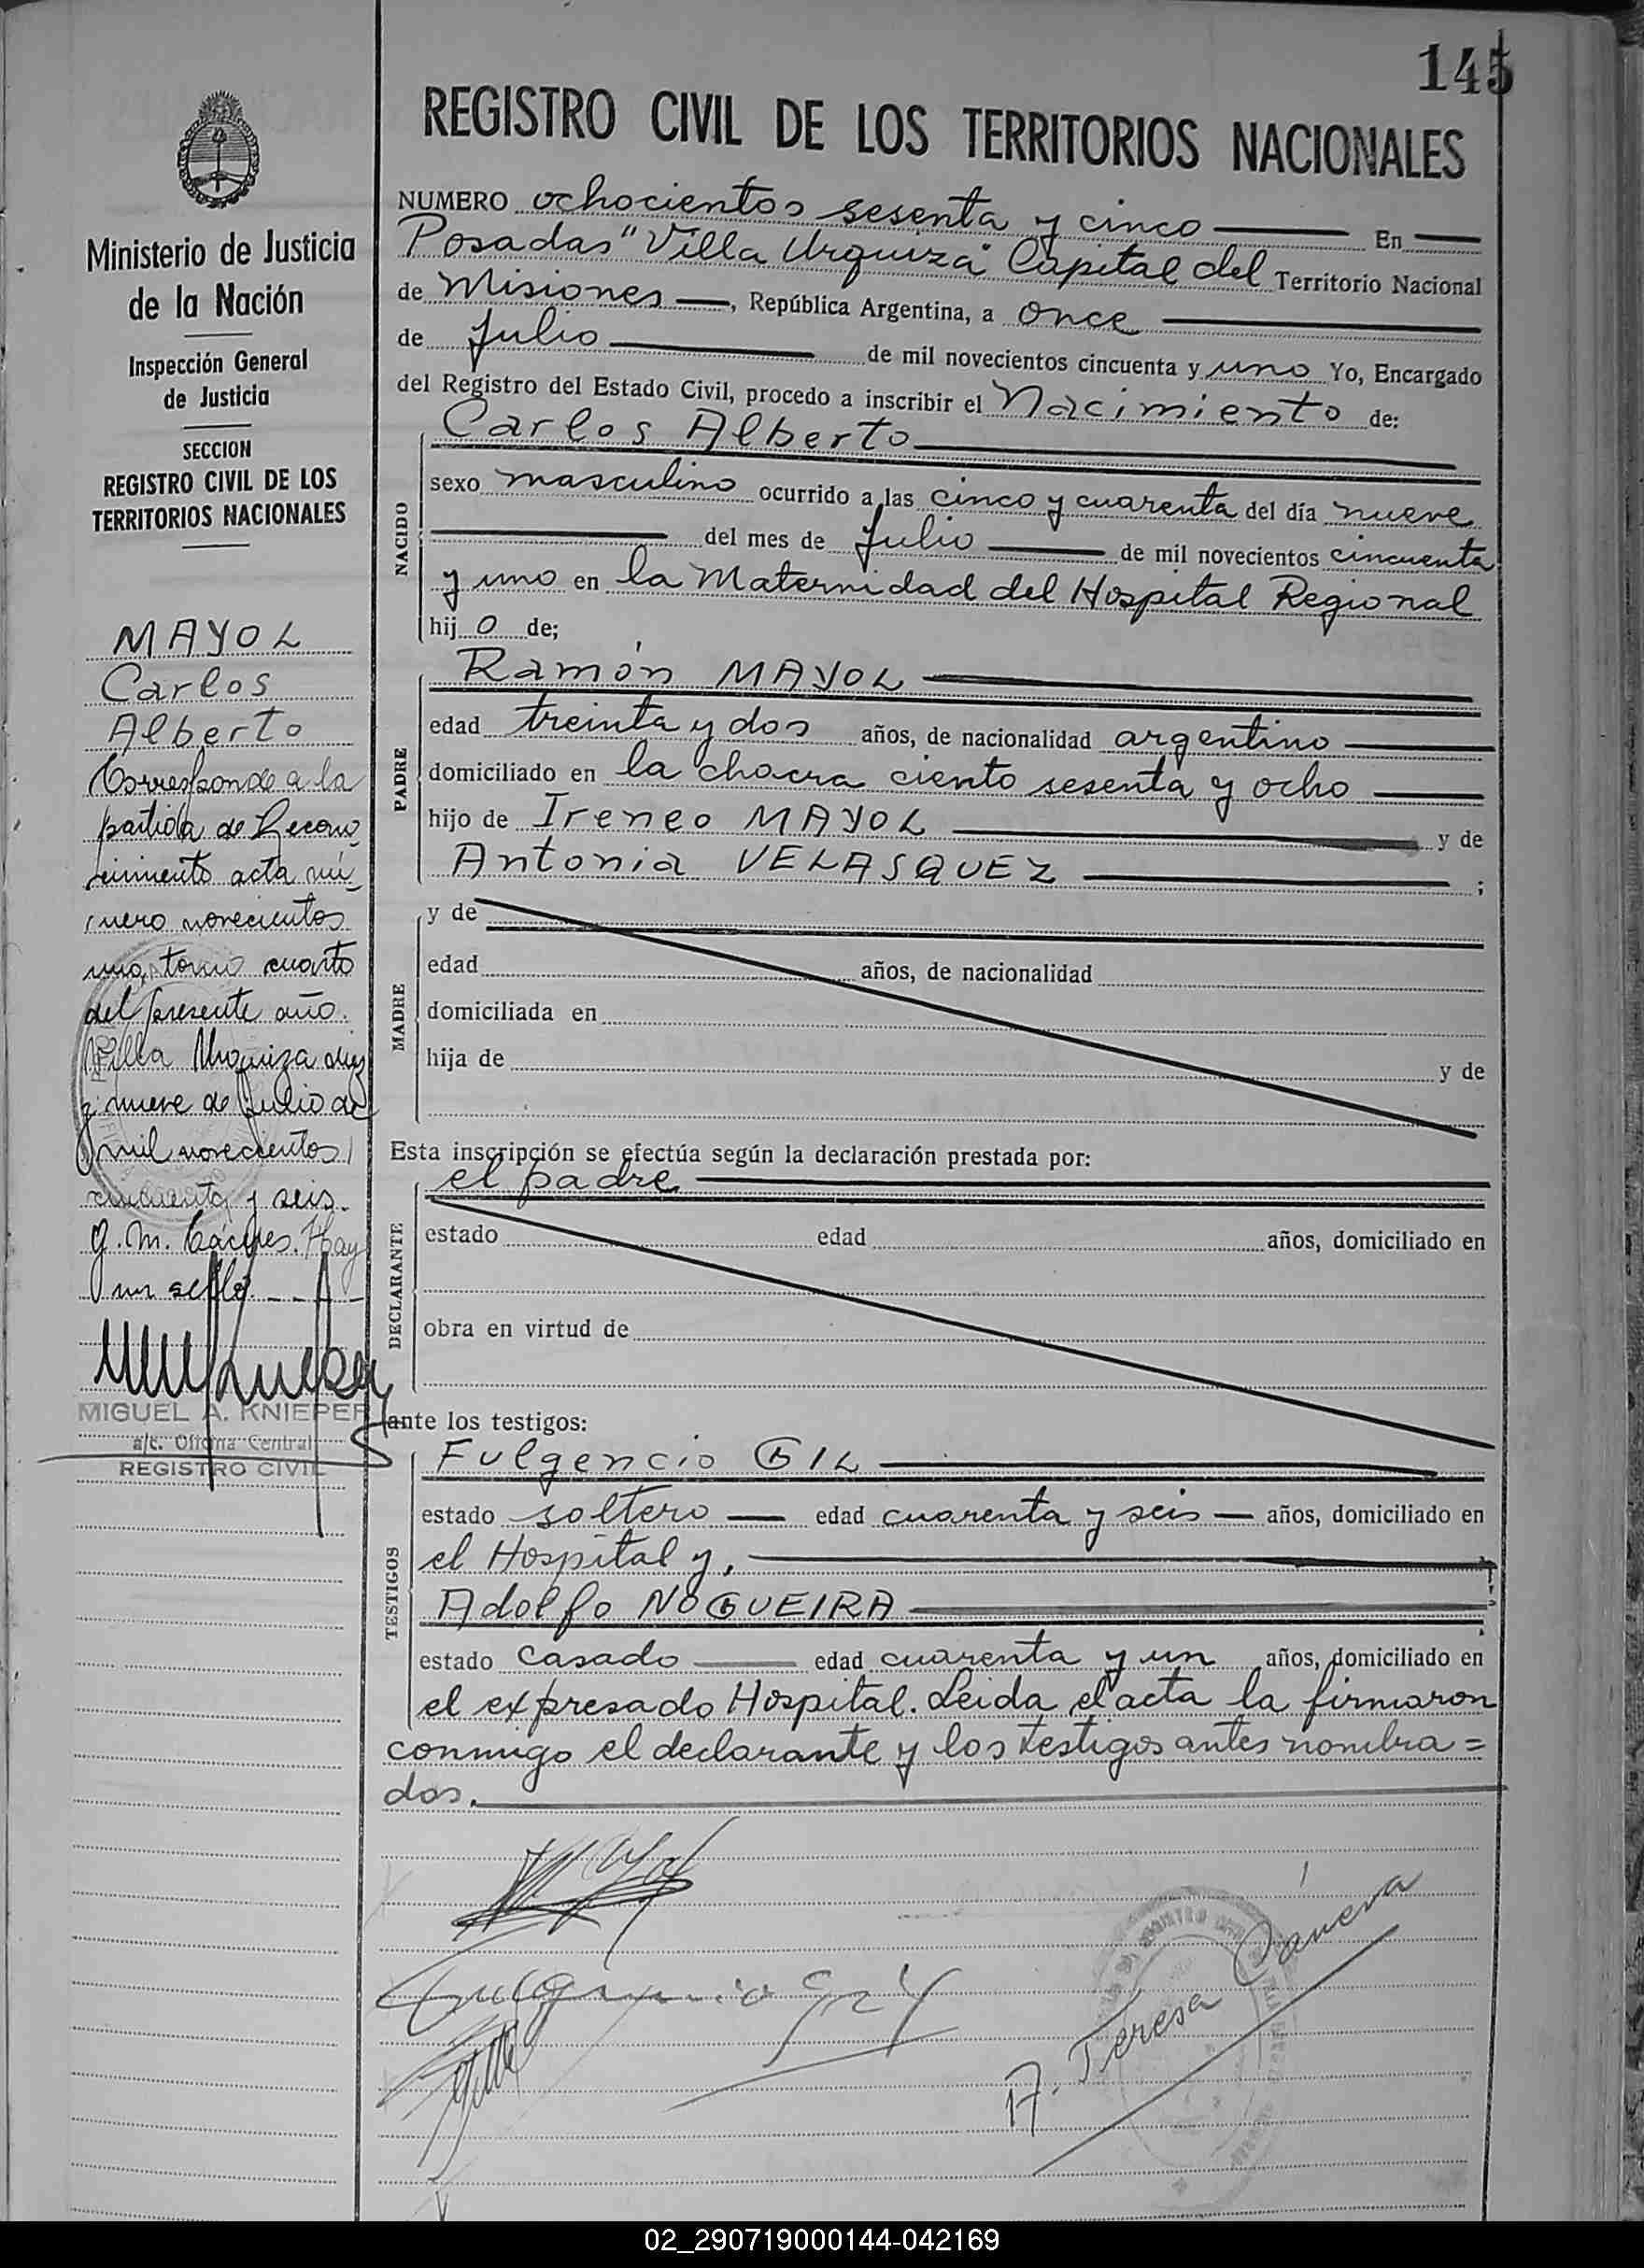 145
REGISTRO CIVIL DE LOS TERRITORIOS NACIONALES
Ministerio de Justicia
de la Nación
Inspección General
de Justicia
SECCION
REGISTRO CIVIL DE LOS
TERRITORIOS NACIONALES
MAYOL
Carlos
Alberto
Corresponde a la
partida de Recono
cimiento acta nú
mero novecientos
uno, tomo cuarto
del presente año.
Villa Urquiza diez
y nueve de Julio de
mil novecientos
cincuenta y seis.
G. M. Cáceres. Hay
un sello
MIGUEL A. KNIEPER
a/c. Oficina Central
REGISTRO CIVIL
NUMERO ochocientos sesenta y cinco En
Posadas "Villa Urquiza" Capital del Territorio Nacional
de Misiones, República Argentina, a once
de Julio de mil novecientos cincuenta y uno Yo, Encargado
del Registro del Estado Civil, procedo a inscribir el Nacimiento de:
NACIDO
Carlos Alberto
sexo masculino ocurrido a las cinco y cuarenta del día nueve
del mes de Julio de mil novecientos cincuenta
y uno en la Maternidad del Hospital Regional
hijo de;
PADRE
Ramón MAYOL
edad treinta y dos años, de nacionalidad argentino
domiciliado en la chacra ciento sesenta y ocho
hijo de Ireneo MAYOL y de
Antonia VELASQUEZ ;
MADRE
y de
edad años, de nacionalidad
domiciliada en
hija de y de
Esta inscripción se efectúa según la declaración prestada por:
el padre
DECLARANTE
estado edad años, domiciliado en
obra en virtud de
ante los testigos:
TESTIGOS
Fulgencio GIL
estado soltero edad cuarenta y seis años, domiciliado en
el Hospital y,
Adolfo NOGUEIRA
estado casado edad cuarenta y un años, domiciliado en
el expresado Hospital. Leida el acta la firmaron
conmigo el declarante y los testigos antes nombra=
dos.
Fulgencio Gil
A. Teresa Cáneva
02_290719000144-042169